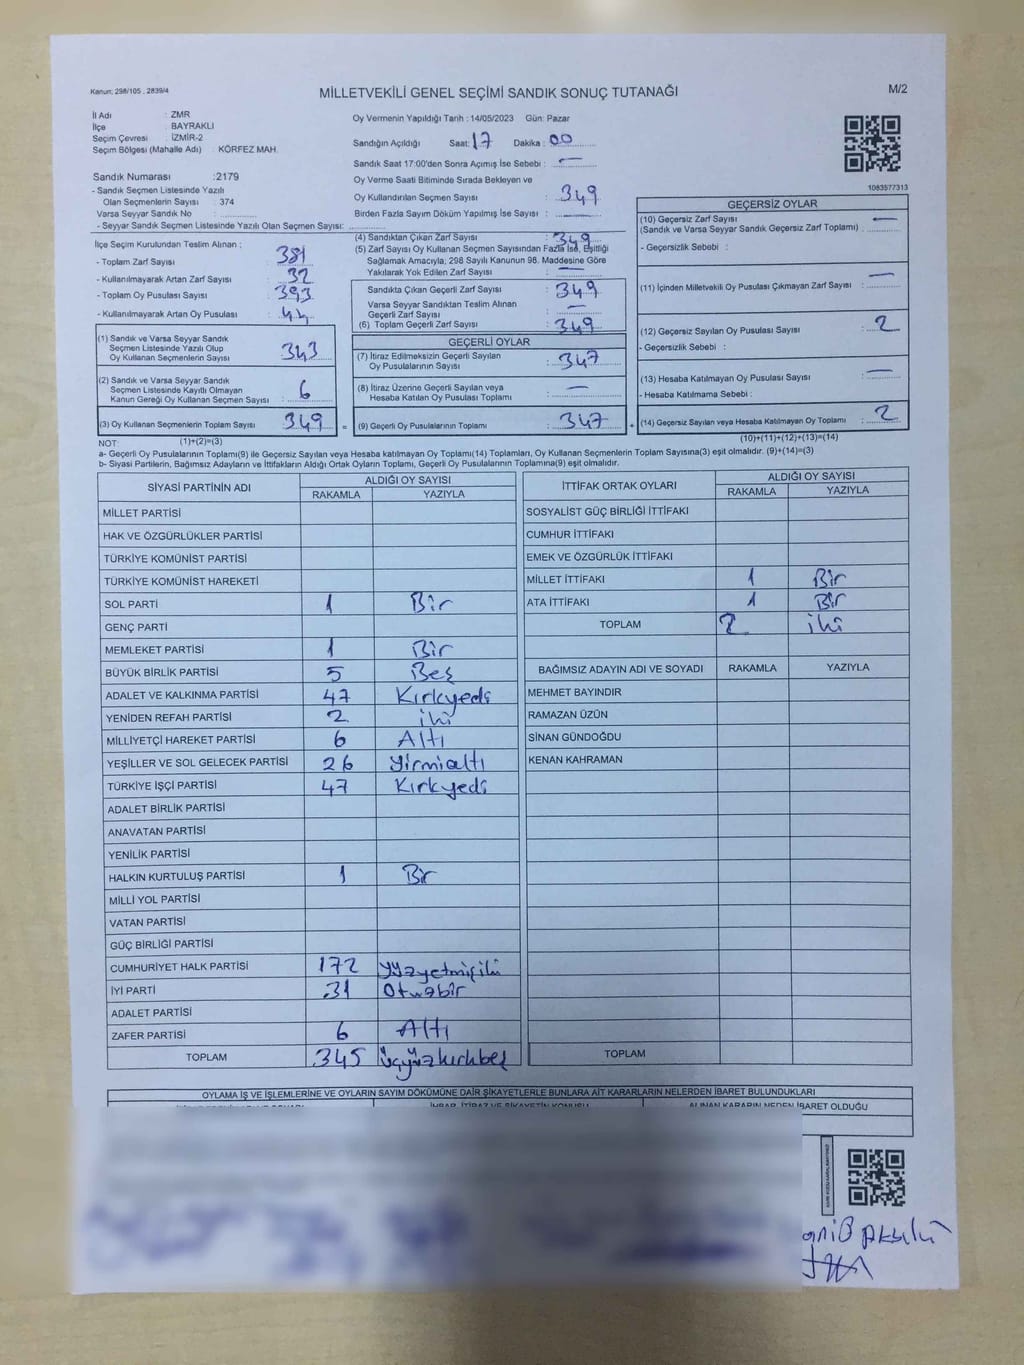 Kanun: 298/105 , 2839/4
MİLLETVEKİLİ GENEL SEÇİMİ SANDIK SONUÇ TUTANAĞI
M/2
İl Adı : ZMR
İlçe : BAYRAKLI
Seçim Çevresi : İZMİR-2
Seçim Bölgesi (Mahalle Adı) : KÖRFEZ MAH.
Sandık Numarası :2179
- Sandık Seçmen Listesinde Yazılı
Olan Seçmenlerin Sayısı : 374
Varsa Seyyar Sandık No :
- Seyyar Sandık Seçmen Listesinde Yazılı Olan Seçmen Sayısı:
Oy Vermenin Yapıldığı Tarih : 14/05/2023 Gün: Pazar
Sandığın Açıldığı Saat: 17 Dakika : 00
Sandık Saat 17:00'den Sonra Açımış İse Sebebi : —
Oy Verme Saati Bitiminde Sırada Bekleyen ve
Oy Kullandırılan Seçmen Sayısı : 349
Birden Fazla Sayım Döküm Yapılmış İse Sayısı : —
1083577313
İlçe Seçim Kurulundan Teslim Alınan :
- Toplam Zarf Sayısı : 381
- Kullanılmayarak Artan Zarf Sayısı : 32
- Toplam Oy Pusulası Sayısı : 393
- Kullanılmayarak Artan Oy Pusulası : 44
(1) Sandık ve Varsa Seyyar Sandık
Seçmen Listesinde Yazılı Olup
Oy Kullanan Seçmenlerin Sayısı : 343
(2) Sandık ve Varsa Seyyar Sandık
Seçmen Listesinde Kayıtlı Olmayan
Kanun Gereği Oy Kullanan Seçmen Sayısı : 6
(3) Oy Kullanan Seçmenlerin Toplam Sayısı : 349
(4) Sandıktan Çıkan Zarf Sayısı : 349
(5) Zarf Sayısı Oy Kullanan Seçmen Sayısından Fazla İse, Eşitliği
Sağlamak Amacıyla; 298 Sayılı Kanunun 98. Maddesine Göre
Yakılarak Yok Edilen Zarf Sayısı : —
Sandıkta Çıkan Geçerli Zarf Sayısı : 349
Varsa Seyyar Sandıktan Teslim Alınan
Geçerli Zarf Sayısı : —
(6) Toplam Geçerli Zarf Sayısı : 349
GEÇERLİ OYLAR
(7) İtiraz Edilmeksizin Geçerli Sayılan
Oy Pusulalarının Sayısı : 347
(8) İtiraz Üzerine Geçerli Sayılan veya
Hesaba Katılan Oy Pusulası Toplamı : —
= (9) Geçerli Oy Pusulalarının Toplamı : 347 +
GEÇERSİZ OYLAR
(10) Geçersiz Zarf Sayısı —
(Sandık ve Varsa Seyyar Sandık Geçersiz Zarf Toplamı) :
- Geçersizlik Sebebi :
(11) İçinden Milletvekili Oy Pusulası Çıkmayan Zarf Sayısı : —
(12) Geçersiz Sayılan Oy Pusulası Sayısı : 2
- Geçersizlik Sebebi :
(13) Hesaba Katılmayan Oy Pusulası Sayısı : —
- Hesaba Katılmama Sebebi :
(14) Geçersiz Sayılan veya Hesaba Katılmayan Oy Toplamı : 2
NOT: (1)+(2)=(3)
(10)+(11)+(12)+(13)=(14)
a- Geçerli Oy Pusulalarının Toplamı(9) ile Geçersiz Sayılan veya Hesaba katılmayan Oy Toplamı(14) Toplamları, Oy Kullanan Seçmenlerin Toplam Sayısına(3) eşit olmalıdır. (9)+(14)=(3)
b- Siyasi Partilerin, Bağımsız Adayların ve İttifakların Aldığı Ortak Oyların Toplamı, Geçerli Oy Pusulalarının Toplamına(9) eşit olmalıdır.
SİYASİ PARTİNİN ADI ALDIĞI OY SAYISI
RAKAMLA YAZIYLA
MİLLET PARTİSİ
HAK VE ÖZGÜRLÜKLER PARTİSİ
TÜRKİYE KOMÜNİST PARTİSİ
TÜRKİYE KOMÜNİST HAREKETİ
SOL PARTİ 1 Bir
GENÇ PARTİ
MEMLEKET PARTİSİ 1 Bir
BÜYÜK BİRLİK PARTİSİ 5 Beş
ADALET VE KALKINMA PARTİSİ 47 Kırkyedi
YENİDEN REFAH PARTİSİ 2 iki
MİLLİYETÇİ HAREKET PARTİSİ 6 Altı
YEŞİLLER VE SOL GELECEK PARTİSİ 26 Yirmialtı
TÜRKİYE İŞÇİ PARTİSİ 47 Kırkyedi
ADALET BİRLİK PARTİSİ
ANAVATAN PARTİSİ
YENİLİK PARTİSİ
HALKIN KURTULUŞ PARTİSİ 1 Bir
MİLLİ YOL PARTİSİ
VATAN PARTİSİ
GÜÇ BİRLİĞİ PARTİSİ
CUMHURİYET HALK PARTİSİ 172 Yüzyetmişiki
İYİ PARTİ 31 Otuzbir
ADALET PARTİSİ
ZAFER PARTİSİ 6 Altı
TOPLAM 345 üçyüzkırkbeş
İTTİFAK ORTAK OYLARI ALDIĞI OY SAYISI
RAKAMLA YAZIYLA
SOSYALİST GÜÇ BİRLİĞİ İTTİFAKI
CUMHUR İTTİFAKI
EMEK VE ÖZGÜRLÜK İTTİFAKI
MİLLET İTTİFAKI 1 Bir
ATA İTTİFAKI 1 Bir
TOPLAM 2 iki
BAĞIMSIZ ADAYIN ADI VE SOYADI RAKAMLA YAZIYLA
MEHMET BAYINDIR
RAMAZAN ÜZÜN
SİNAN GÜNDOĞDU
KENAN KAHRAMAN
TOPLAM
OYLAMA İŞ VE İŞLEMLERİNE VE OYLARIN SAYIM DÖKÜMÜNE DAİR ŞİKAYETLERLE BUNLARA AİT KARARLARIN NELERDEN İBARET BULUNDUKLARI
İHBAR, İTİRAZ VE ŞİKAYETİN KONUSU ALINAN KARARIN NEDEN İBARET OLDUĞU